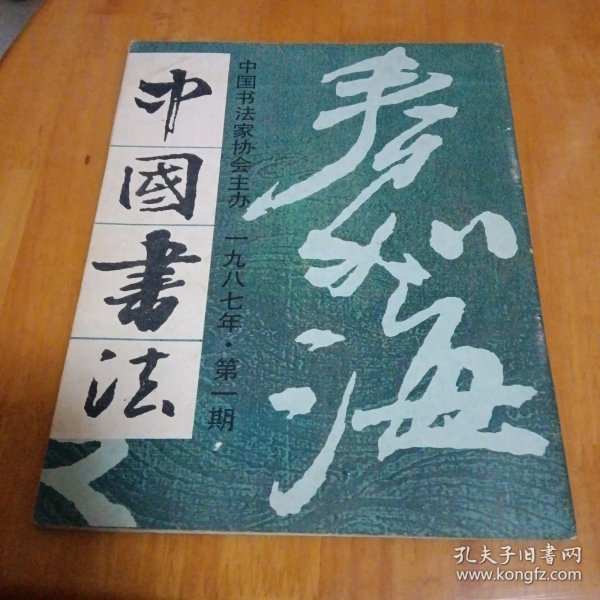 中國書法
中国书法家协会主办 一九八七年·第一期
如海
孔夫子旧书网
www.kongfz.com